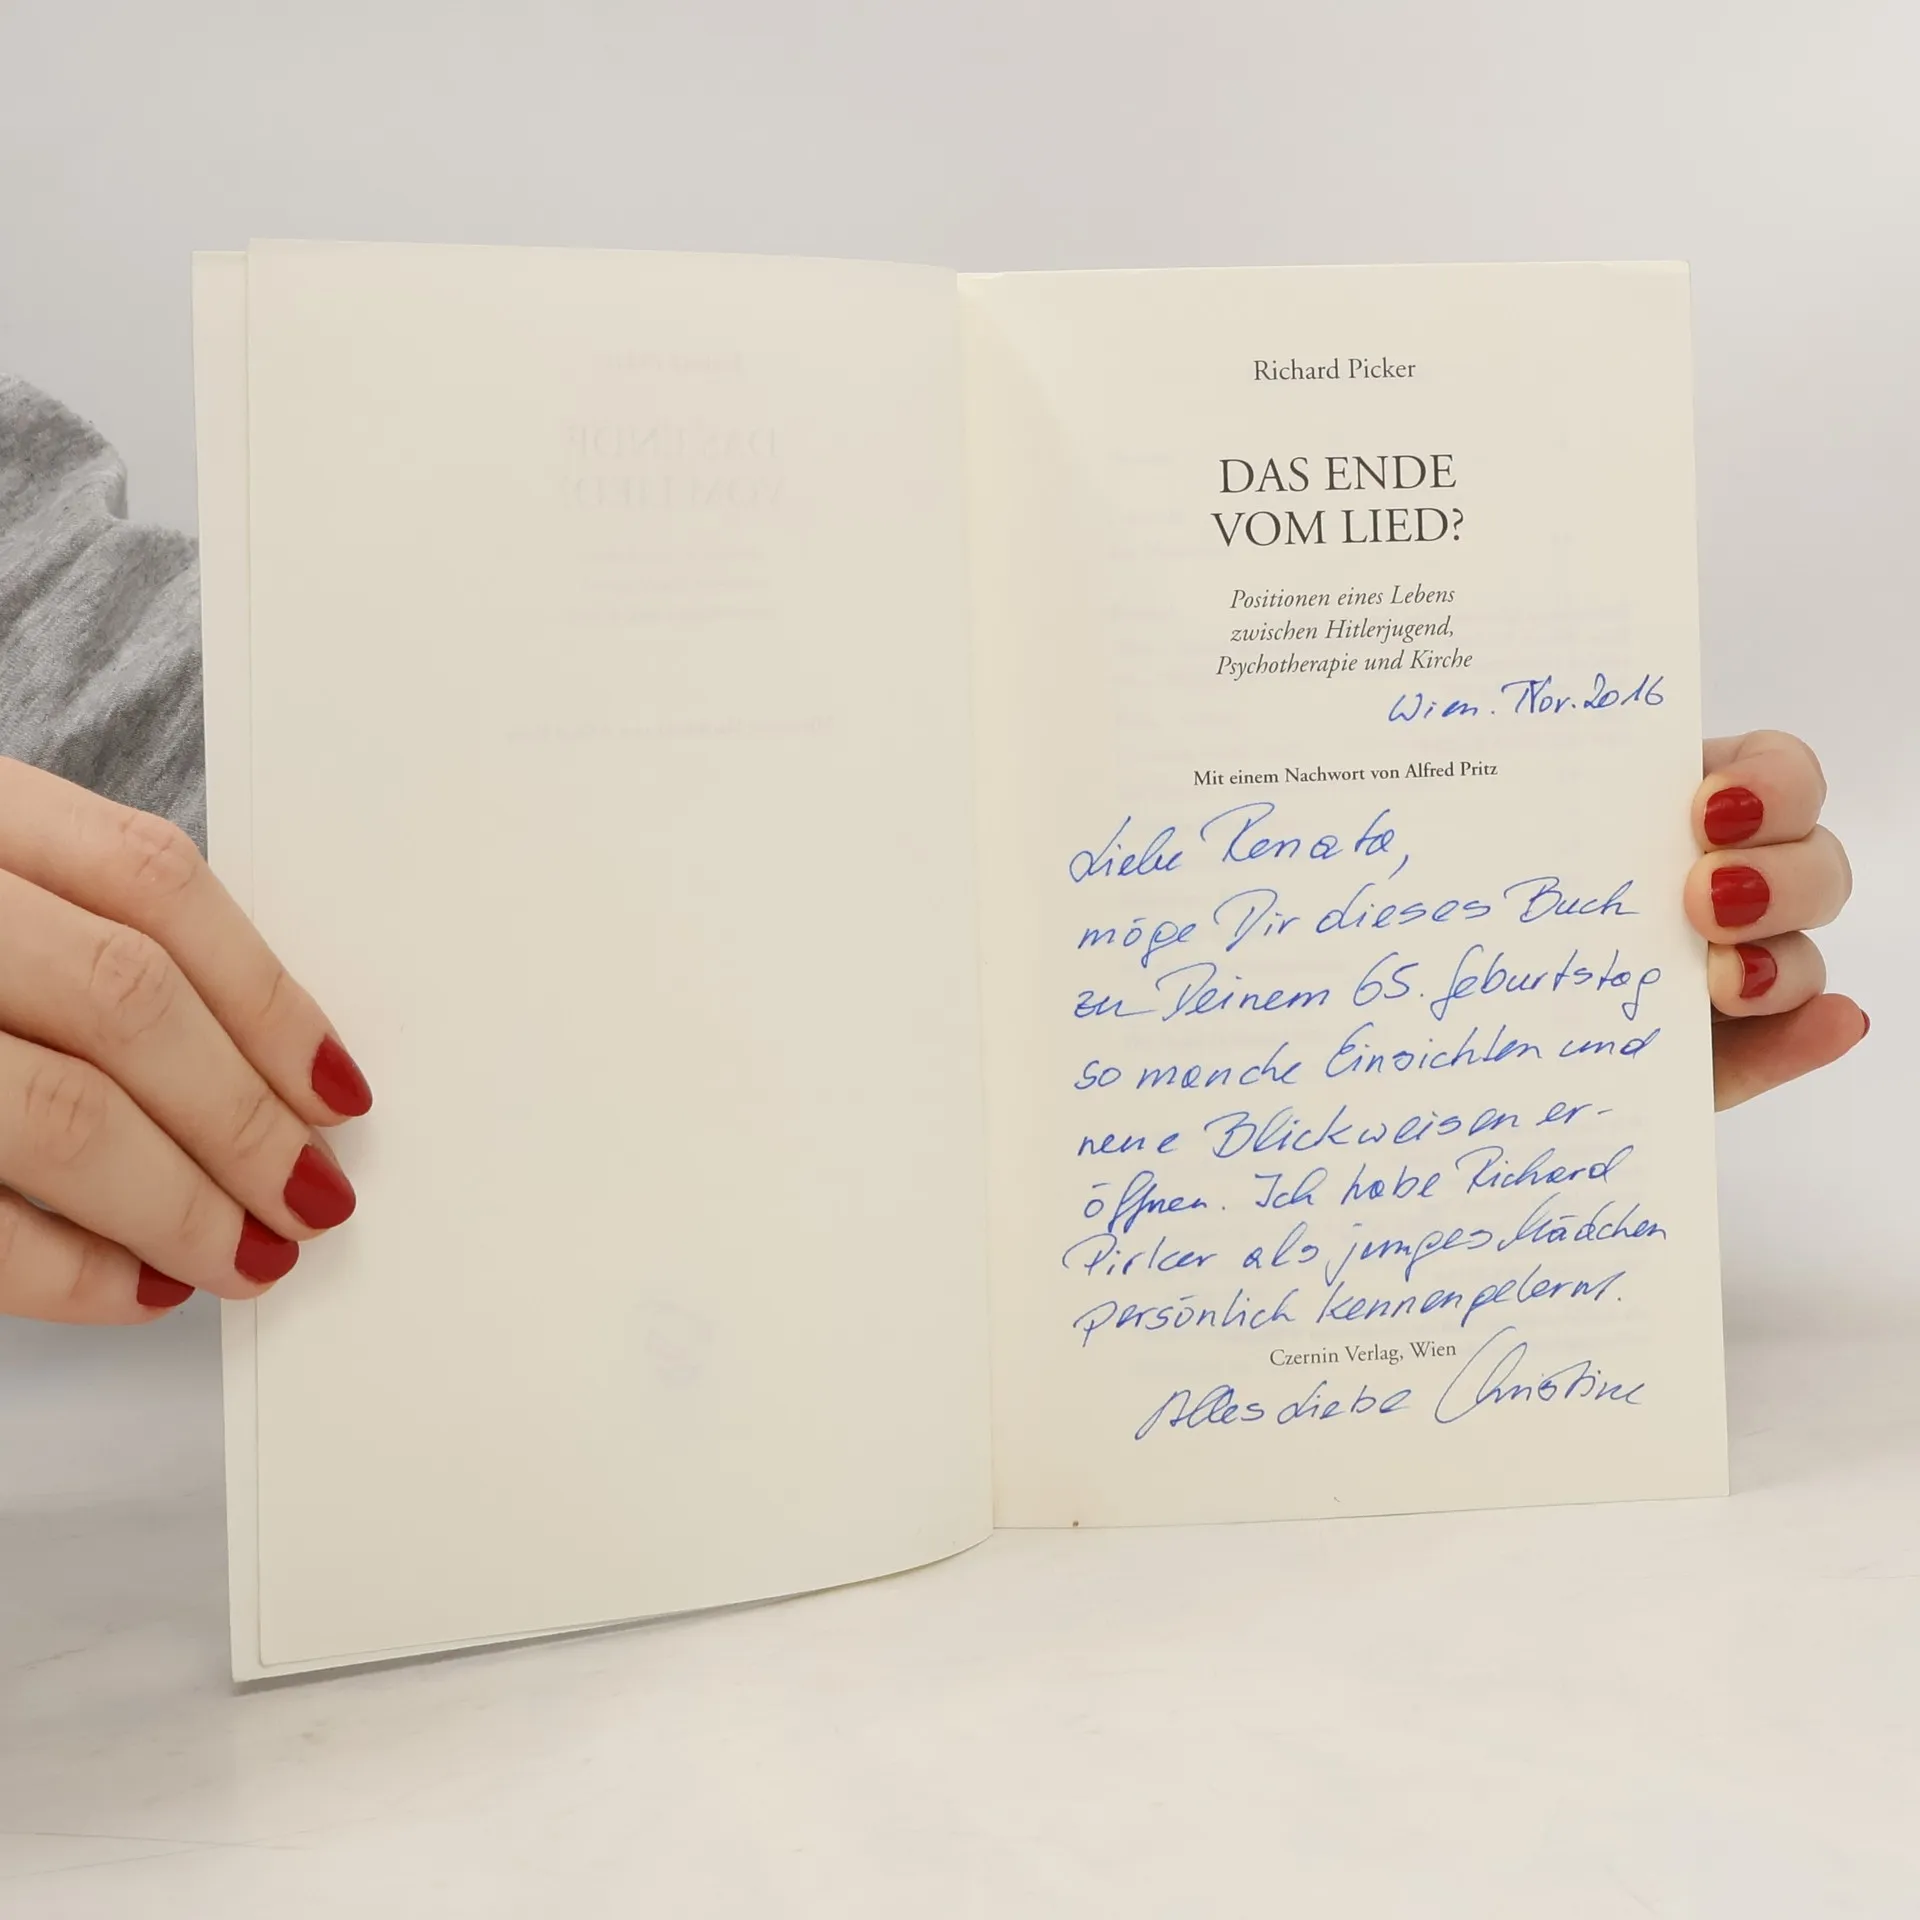 Richard Picker
DAS ENDE
VOM LIED?
Positionen eines Lebens
zwischen Hitlerjugend,
Psychotherapie und Kirche
Wien. Nov. 2016
Mit einem Nachwort von Alfred Pritz
Liebe Renata,
möge Dir dieses Buch
zu Deinem 65. Geburtstag
so manche Einsichten und
neue Blickweisen er-
öffnen. Ich habe Richard
Pirker als junges Mädchen
persönlich kennengelernt.
Czernin Verlag, Wien
Alles Liebe Christine